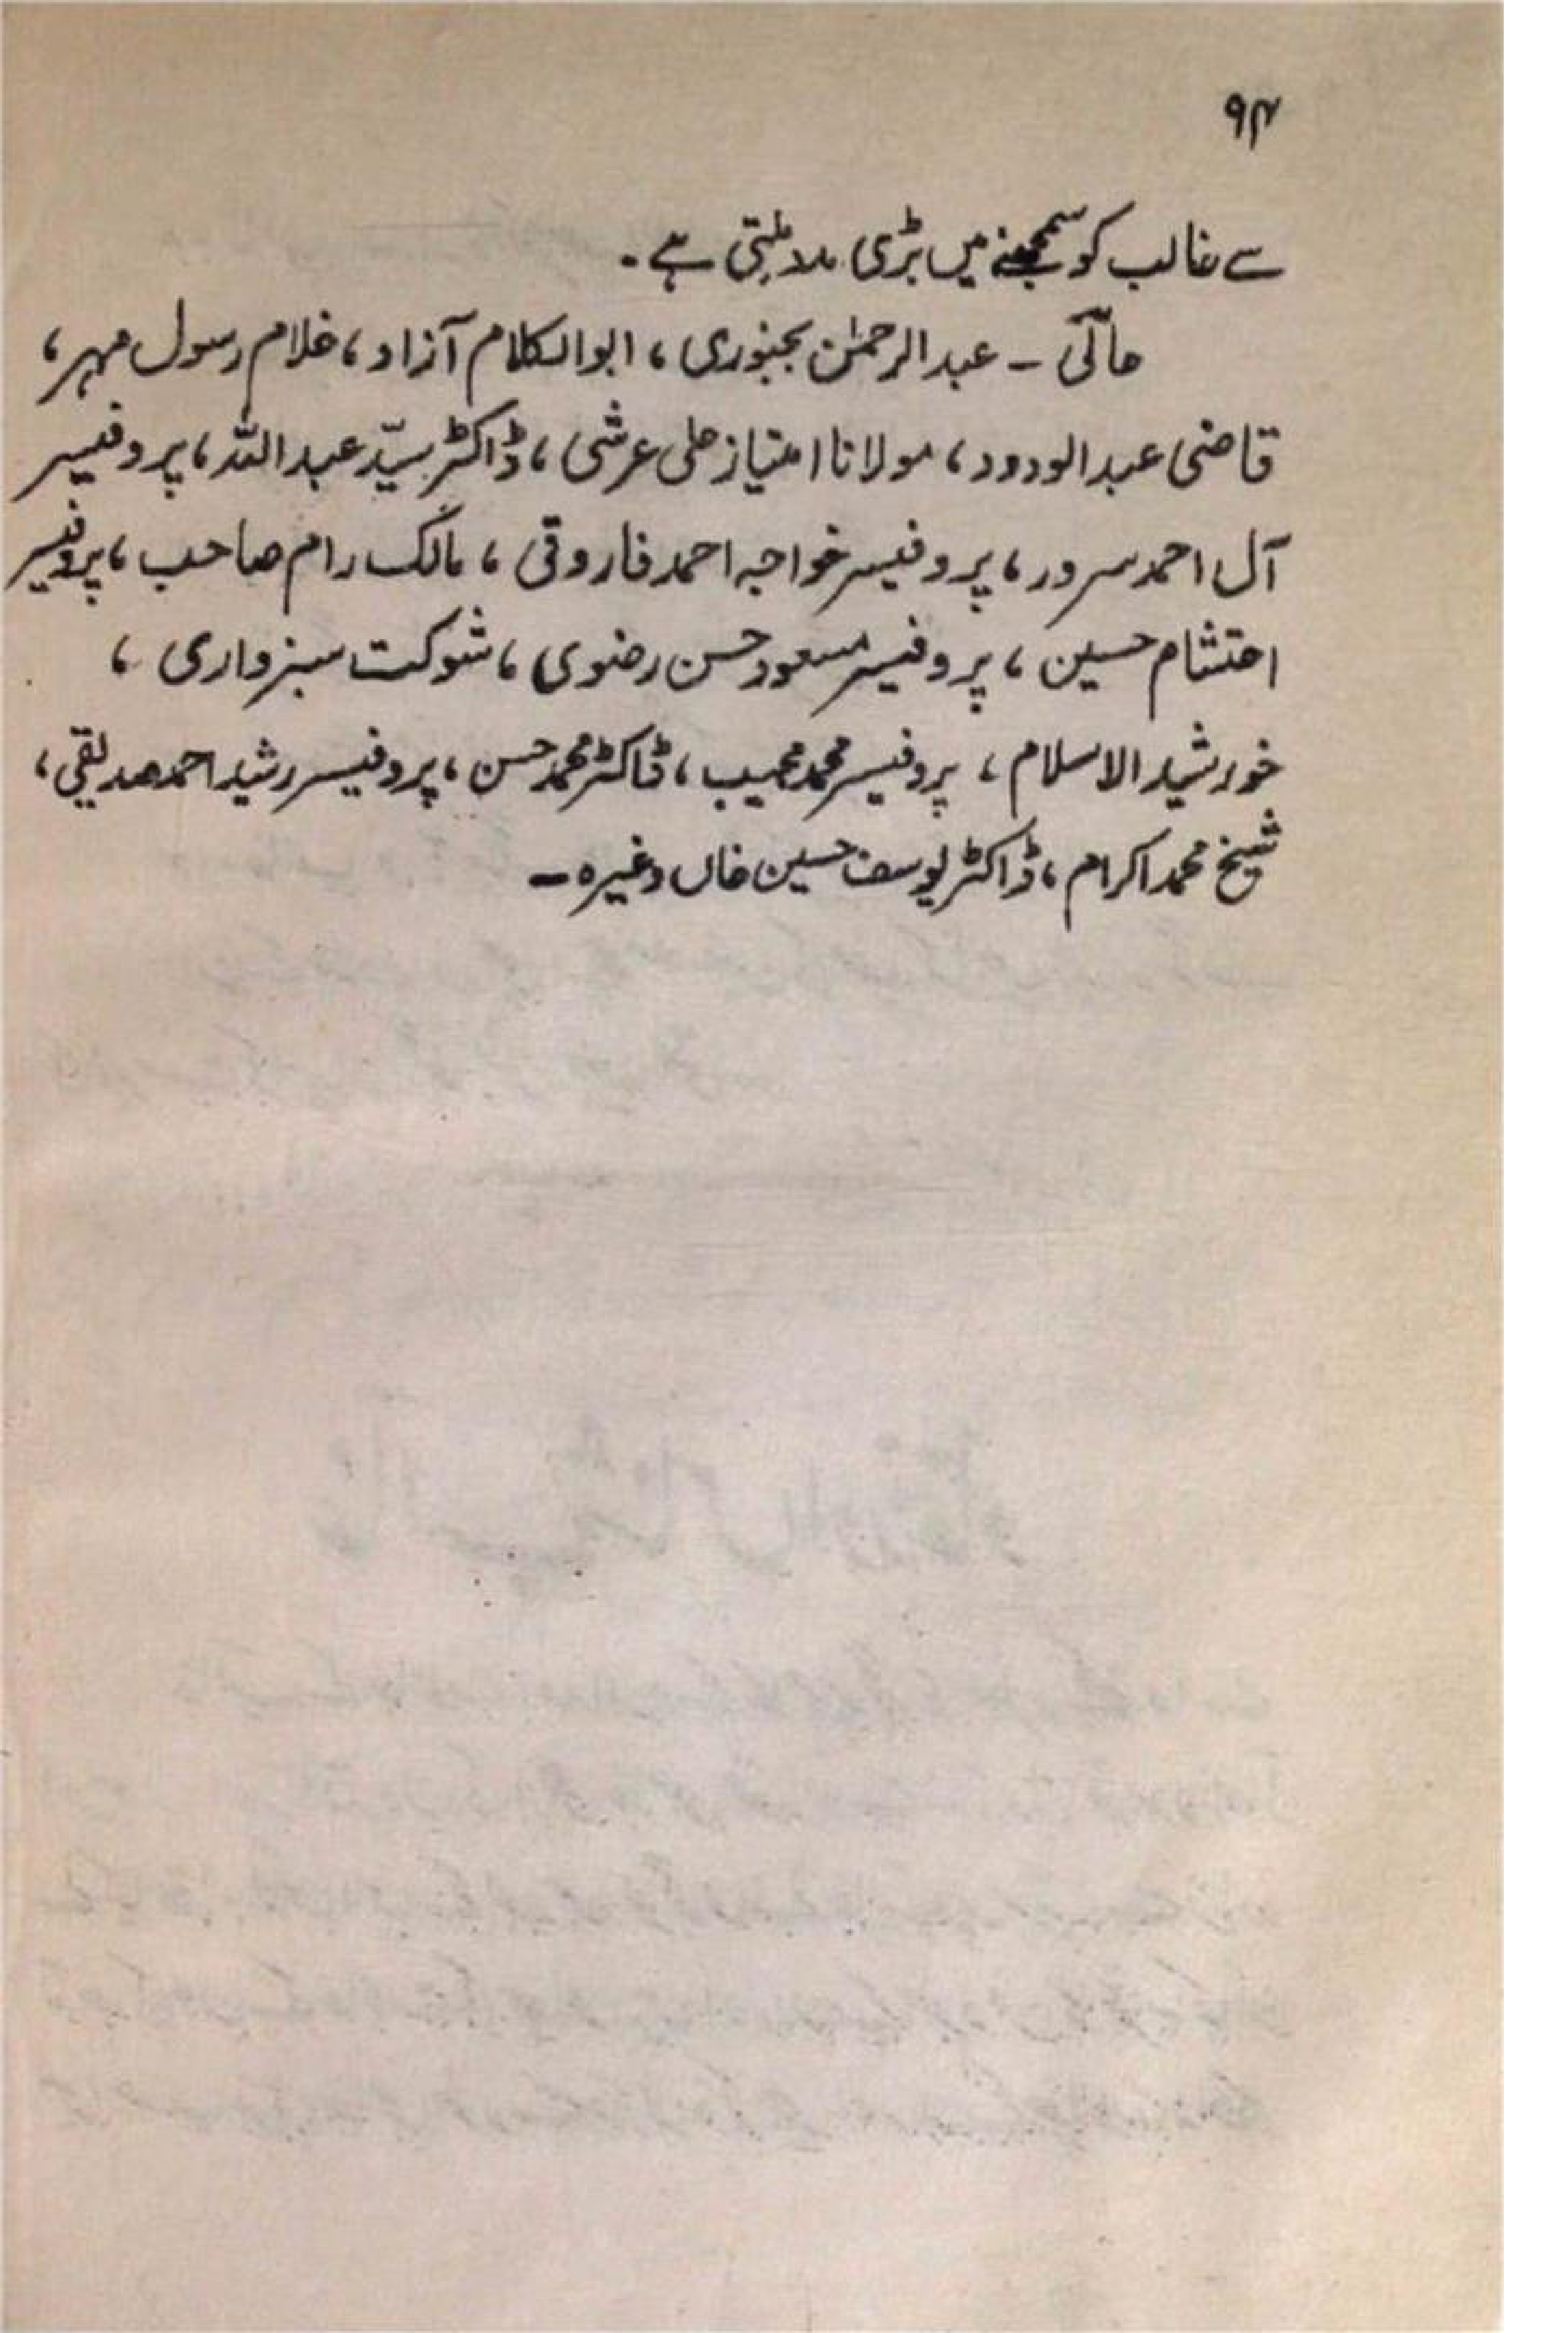 ۹۴
سے غالب کو سمجھنے میں بڑی مدد ملتی ہے۔
حالؔی ۔ عبد الرحمٰن بجنوری ، ابوالکلام آزاد ، غلام رسول مہر ،
قاضی عبد الودود ، مولانا امتیاز علی عرشی ، ڈاکٹر سیّد عبد اللہ ، پروفیسر
آل احمد سرور ، پروفیسر خواجہ احمد فاروقی ، مالک رام صاحب ، پروفیسر
احتشام حسین ، پروفیسر مسعود حسن رضوی ، شوکت سبزواری ،
خورشید الاسلام ، پروفیسر محمد مجیب ، ڈاکٹر محمد حسن ، پروفیسر رشید احمد صدیقی ،
شیخ محمد اکرام ، ڈاکٹر یوسف حسین خاں وغیرہ ۔